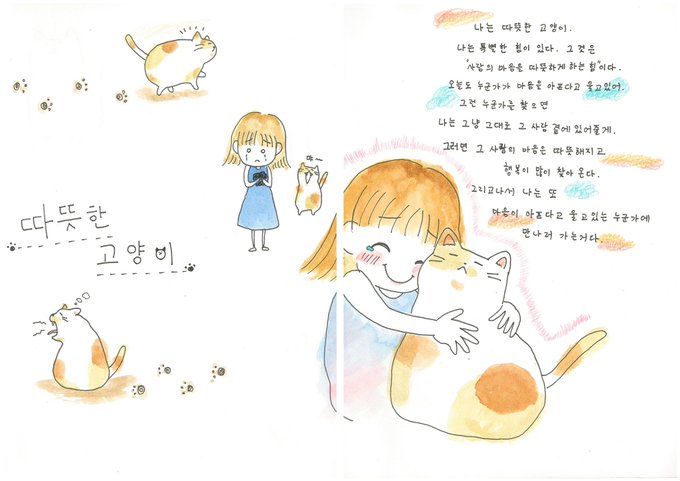 따뜻한
고양이
야~
나는 따뜻한 고양이.
나는 특별한 힘이 있다. 그것은
"사람의 마음을 따뜻하게 하는 힘"이다.
오늘도 누군가가 마음을 아프다고 울고있어.
그런 누군가를 찾으면
나는 그냥 그대로 그 사람 곁에 있어줄게.
그러면 그 사람의 마음은 따뜻해지고
행복이 많이 찾아 온다.
그리고나서 나는 또
마음이 아프다고 울고있는 누군가에
만나러 가는거다.